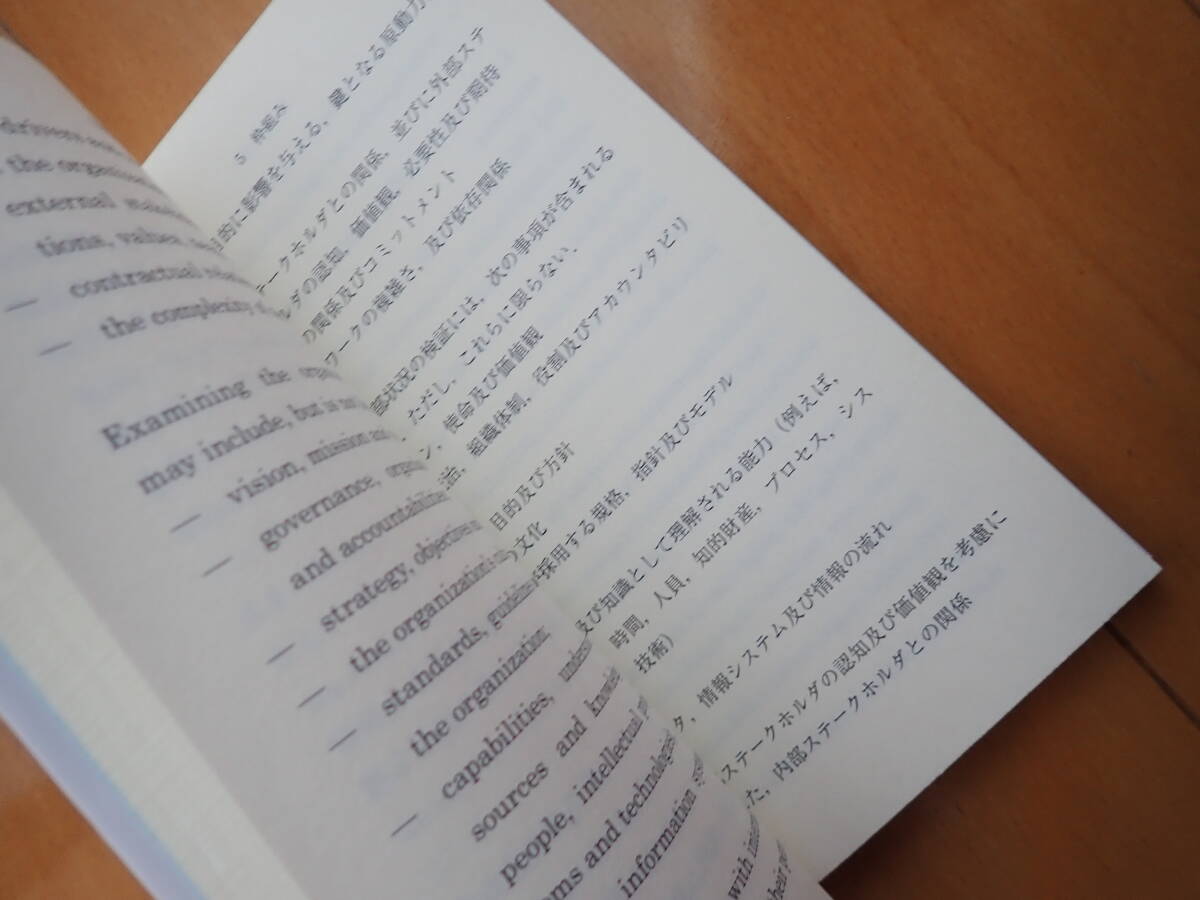 drivers and
the organis
external stake
tions, values, ne
— contractual rela
— the complexity of
Examining the orga
may include, but is not
— vision, mission and
— governance, organ
and accountabilities
— strategy, objectives
— the organization's
— standards, guidelines
the organization
— capabilities, underst
sources and knowled
people, intellectual
ems and technologies
information
with inter
their per
5 枠組み
目的に影響を与える,鍵となる原動力
ークホルダとの関係,並びに外部ステ
ルダの認知,価値観,必要性及び期待
の関係及びコミットメント
ワークの複雑さ,及び依存関係
部状況の検証には,次の事項が含まれる
ただし,これらに限らない.
ン,使命及び価値観
治,組織体制,役割及びアカウンタビリ
目的及び方針
の文化
採用する規格,指針及びモデル
及び知識として理解される能力(例えば,
時間,人員,知的財産,プロセス,シス
技術)
タ,情報システム及び情報の流れ
ステークホルダの認知及び価値観を考慮に
た,内部ステークホルダとの関係